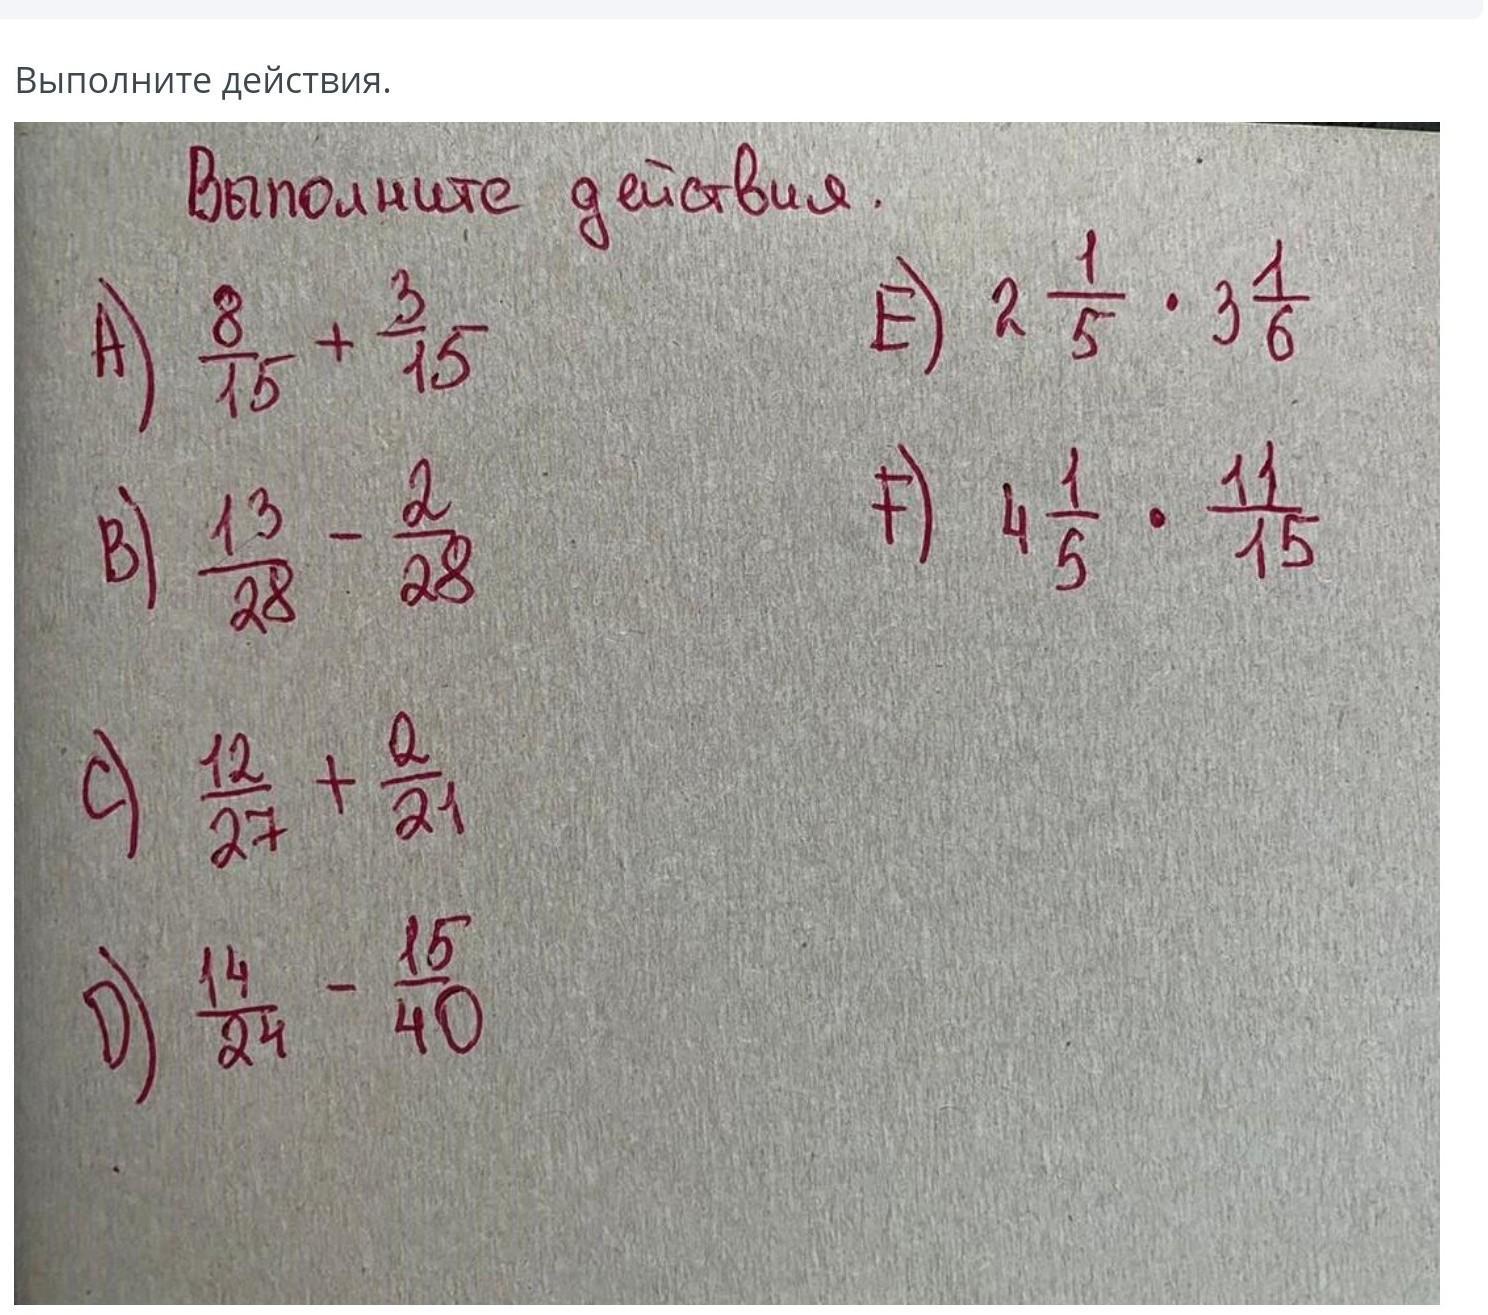 Выполните действия.
Выполните действия.
A) 8/15 + 3/15
B) 13/28 - 2/28
C) 12/27 + 2/21
D) 14/24 - 15/40
E) 2 1/5 · 3 1/6
F) 4 1/5 · 11/15